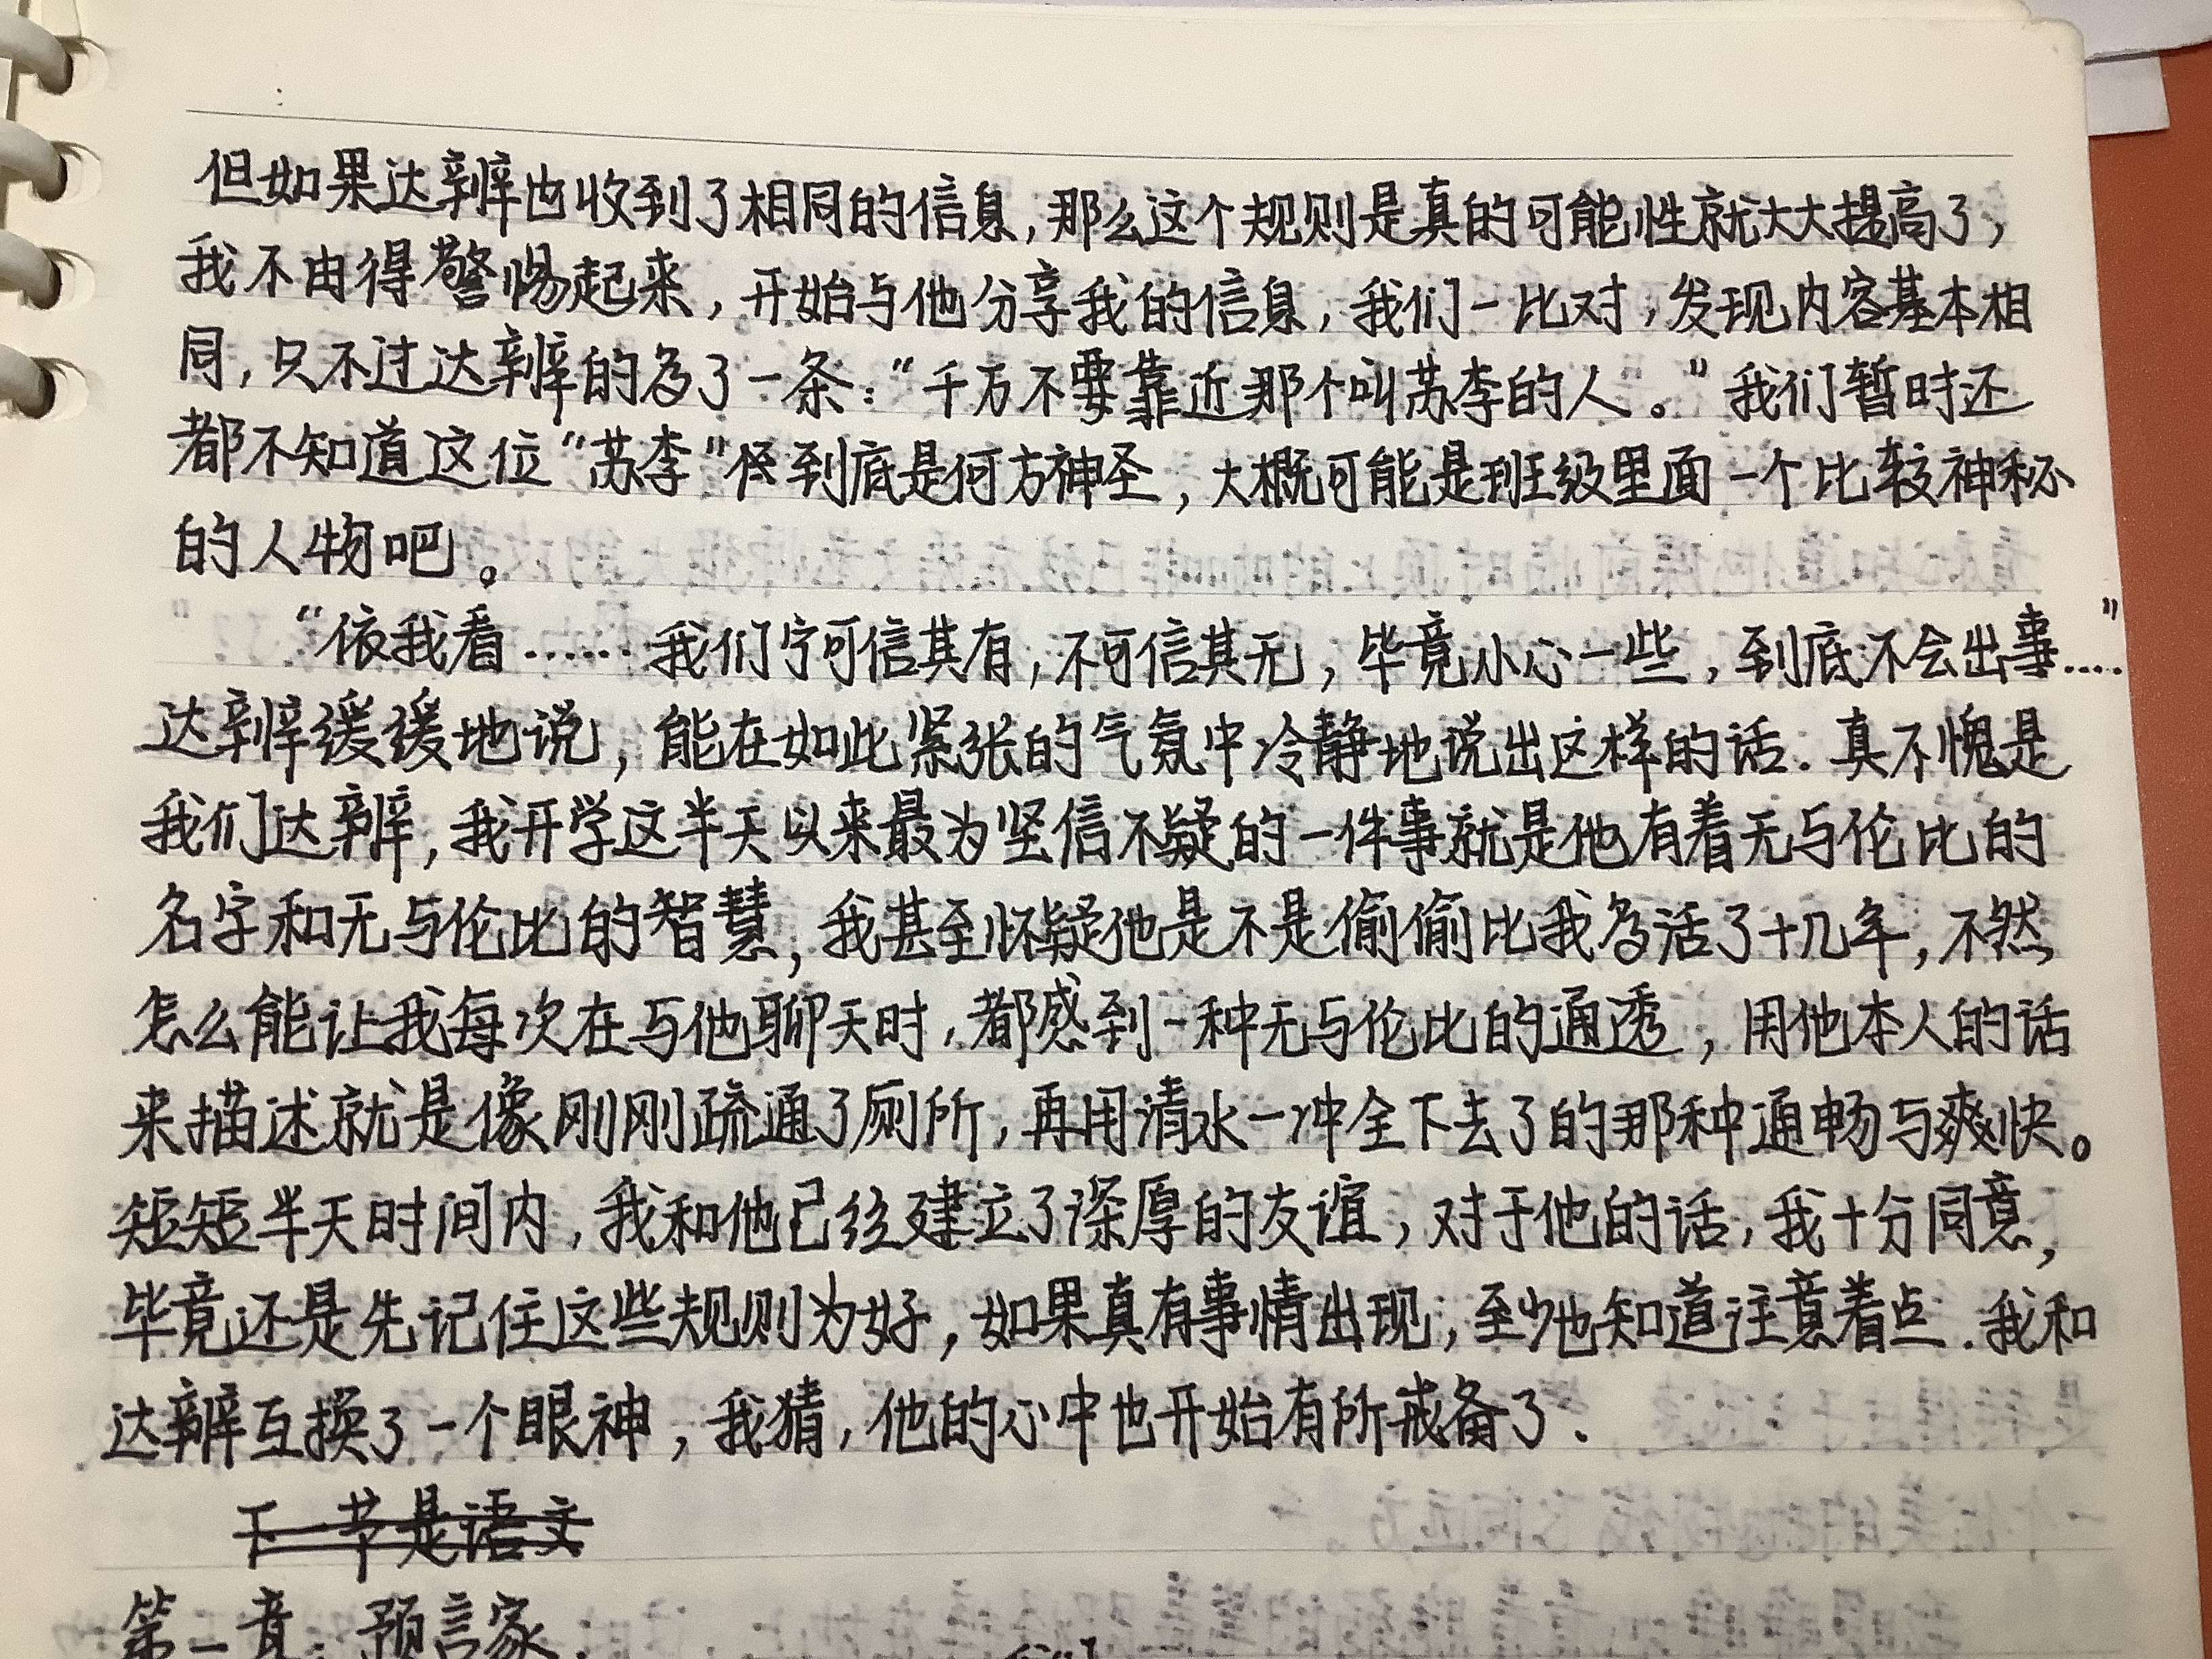 但如果达辨也收到了相同的信息,那么这个规则是真的可能性就大大提高了,
我不由得警惕起来,开始与他分享我的信息,我们一比对,发现内容基本相
同,只不过达辨的多了一条:“千万不要靠近那个叫苏李的人。”我们暂时还
都不知道这位“苏李”到底是何方神圣,大概可能是班级里面一个比较神秘
的人物吧。
“依我看……我们宁可信其有,不可信其无,毕竟小心一些,到底不会出事....”
达辨缓缓地说,能在如此紧张的气氛中冷静地说出这样的话.真不愧是
我们达辨,我开学这半天以来最为坚信不疑的一件事就是他有着无与伦比的
名字和无与伦比的智慧,我甚至怀疑他是不是偷偷比我多活了十几年,不然
怎么能让我每次在与他聊天时,都感到一种无与伦比的通透,用他本人的话
来描述就是像刚刚疏通了厕所,再用清水一冲全下去了的那种通畅与爽快。
短短半天时间内,我和他已经建立了深厚的友谊,对于他的话,我十分同意,
毕竟还是先记住这些规则为好,如果真有事情出现,至少也知道注意着点.我和
达辨互换了一个眼神,我猜,他的心中也开始有所戒备了.
下一节是语文
第一章:预言家.